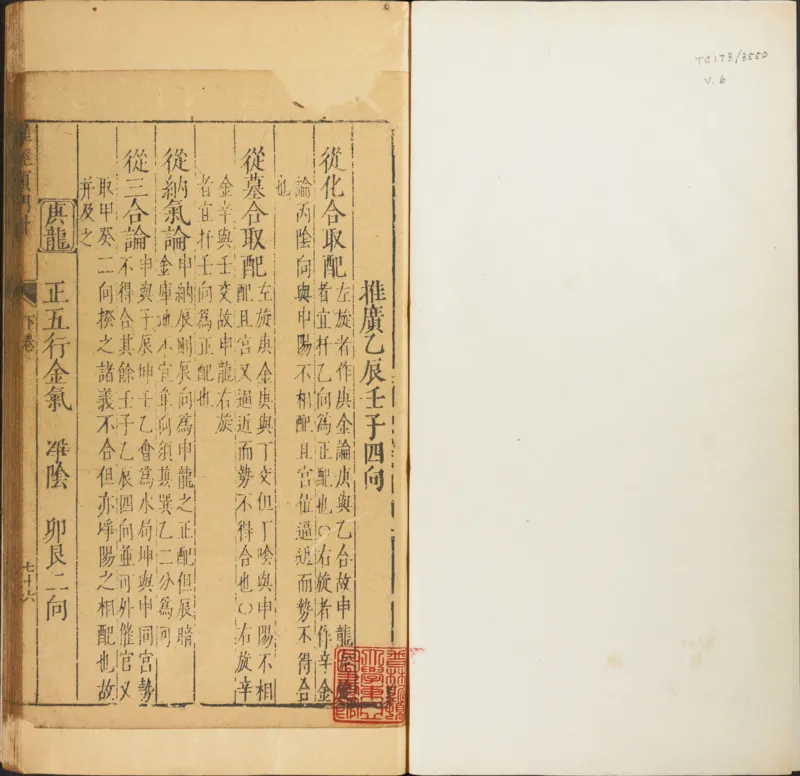 TC173/3550
V. 6
推廣乙辰壬子四向
從化合取配
左旋者作庚金論庚與乙合故申龍左旋
者宜扦乙向為正配也○右旋者作辛金
論丙陰向與申陽不相配且宮位逼近而勢不得合
也
從墓合取配
左旋庚金庚與丁交但丁陰與申陽不相
配且宮又逼近而勢不得合也○右旋辛
金辛與壬交故申龍右旋
者宜扦壬向為正配也
從納氣論
申納辰賜辰向為申龍之正配但辰暗
金庫地不宜單向須兼巽乙二分為可
從三合論
申與子辰坤壬乙會為水局坤與申同宮勢
不得合其餘壬子乙辰四向並可外催官又
取甲癸二向揆之諸義不合但亦淨陽之相配也故
并及之
庚龍 正五行金氣 淨陰 卯艮二向
下卷
七十六